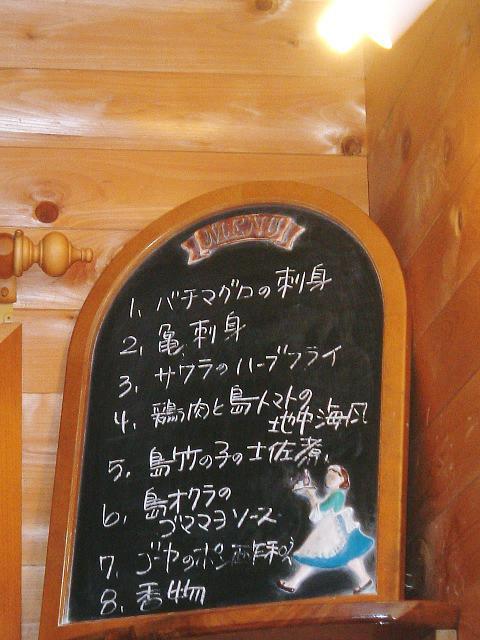 MENU
1. バチマグロの刺身
2. 亀刺身
3. サワラのハーブフライ
4. 鶏肉と島トマトの
地中海風
5. 島竹の子の土佐煮
6. 島オクラの
ゴママヨソース
7. ゴーヤのポン酢和え
8. 香物